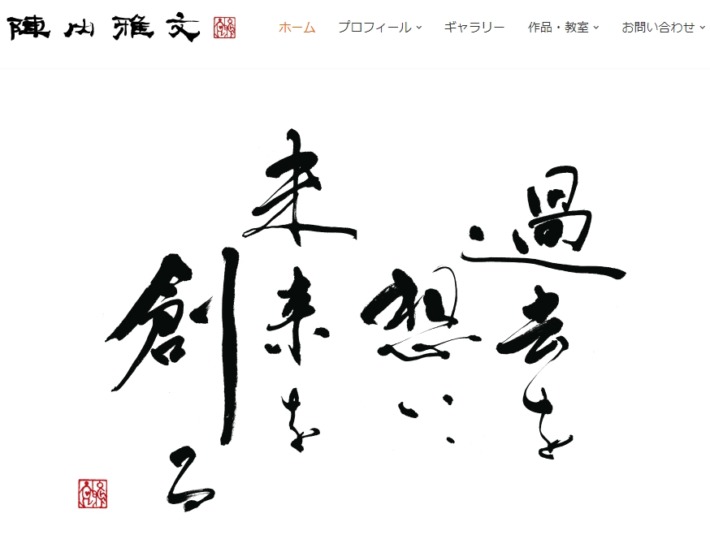 陣山雅文
ホーム
プロフィール
ギャラリー
作品・教室
お問い合わせ
過去を
想い
未来を
創る